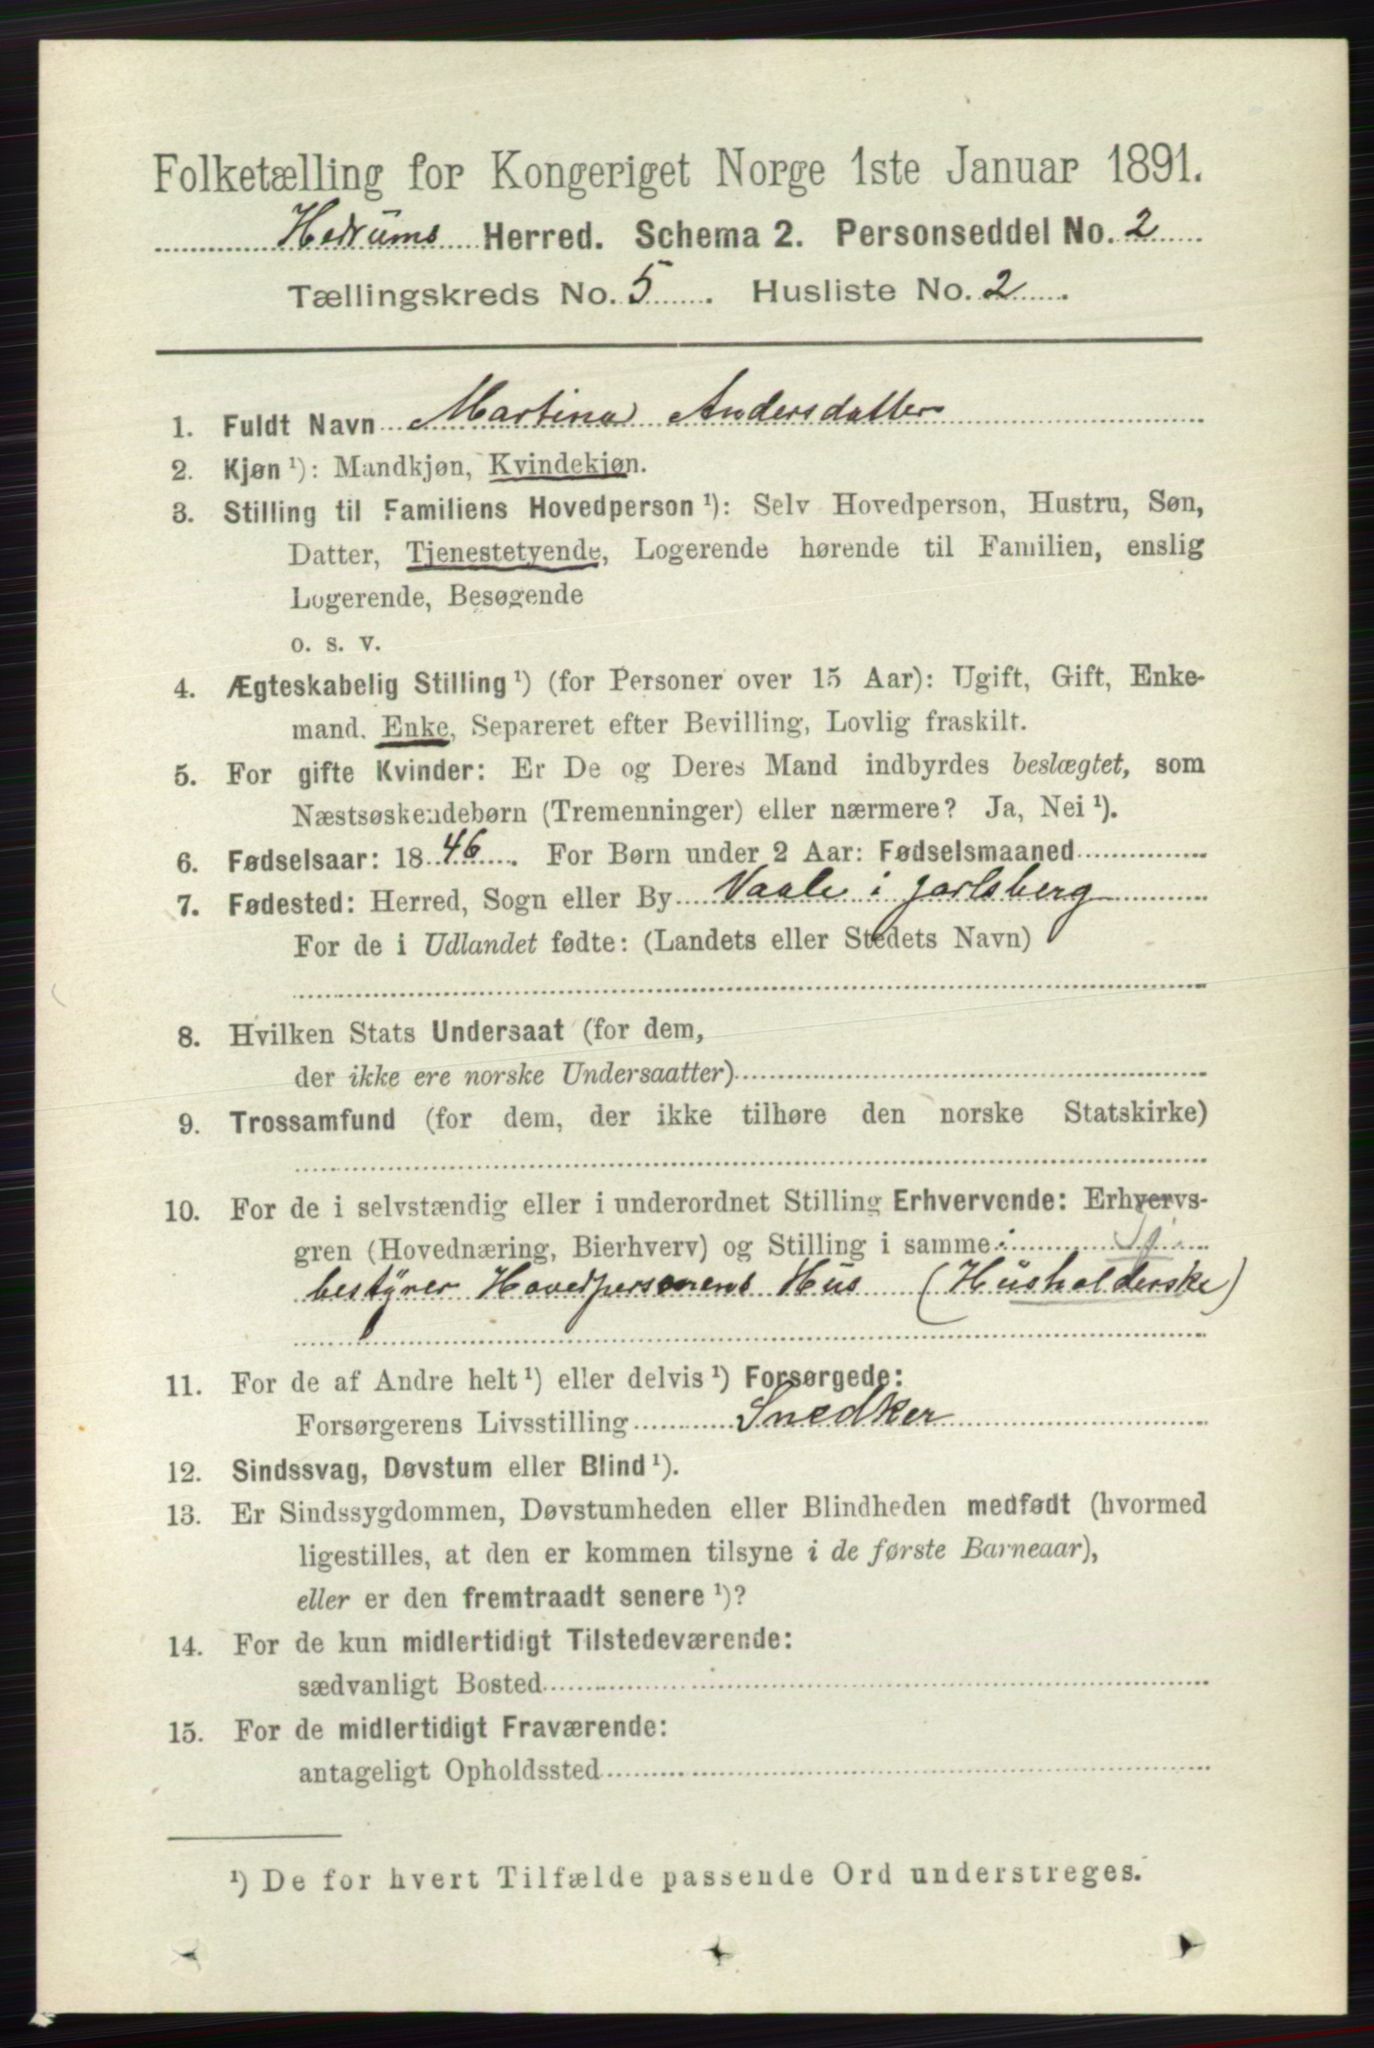 Folketælling for Kongeriget Norge 1ste Januar 1891.
Hedrums Herred. Schema 2. Personseddel No. 2
Tællingskreds No. 5. Husliste No. 2.
1. Fuldt Navn Martina Andersdatter
2. Kjøn ¹): Mandkjøn, Kvindekjøn.
3. Stilling til Familiens Hovedperson ¹): Selv Hovedperson, Hustru, Søn,
Datter, Tjenestetyende, Logerende hørende til Familien, enslig
Logerende, Besøgende
o. s. v.
4. Ægteskabelig Stilling ¹) (for Personer over 15 Aar): Ugift, Gift, Enke-
mand. Enke, Separeret efter Bevilling, Lovlig fraskilt.
5. For gifte Kvinder: Er De og Deres Mand indbyrdes beslægtet, som
Næstsøskendebørn (Tremenninger) eller nærmere? Ja, Nei ¹).
6. Fødselsaar: 1846. For Børn under 2 Aar: Fødselsmaaned
7. Fødested: Herred, Sogn eller By Vaale i Jarlsberg
For de i Udlandet fødte: (Landets eller Stedets Navn)
8. Hvilken Stats Undersaat (for dem,
der ikke ere norske Undersaatter)
9. Trossamfund (for dem, der ikke tilhøre den norske Statskirke)
10. For de i selvstændig eller i underordnet Stilling Erhvervende: Erhvervs-
gren (Hovednæring, Bierhverv) og Stilling i samme:
bestyrer Hovedpersonens Hus (Husholderske)
11. For de af Andre helt ¹) eller delvis ¹) Forsørgede:
Forsørgerens Livsstilling Snedker
12. Sindssvag, Døvstum eller Blind ¹).
13. Er Sindssygdommen, Døvstumheden eller Blindheden medfødt (hvormed
ligestilles, at den er kommen tilsyne i de første Barneaar),
eller er den fremtraadt senere ¹)?
14. For de kun midlertidigt Tilstedeværende:
sædvanligt Bosted
15. For de midlertidigt Fraværende:
antageligt Opholdssted
¹) De for hvert Tilfælde passende Ord understreges.